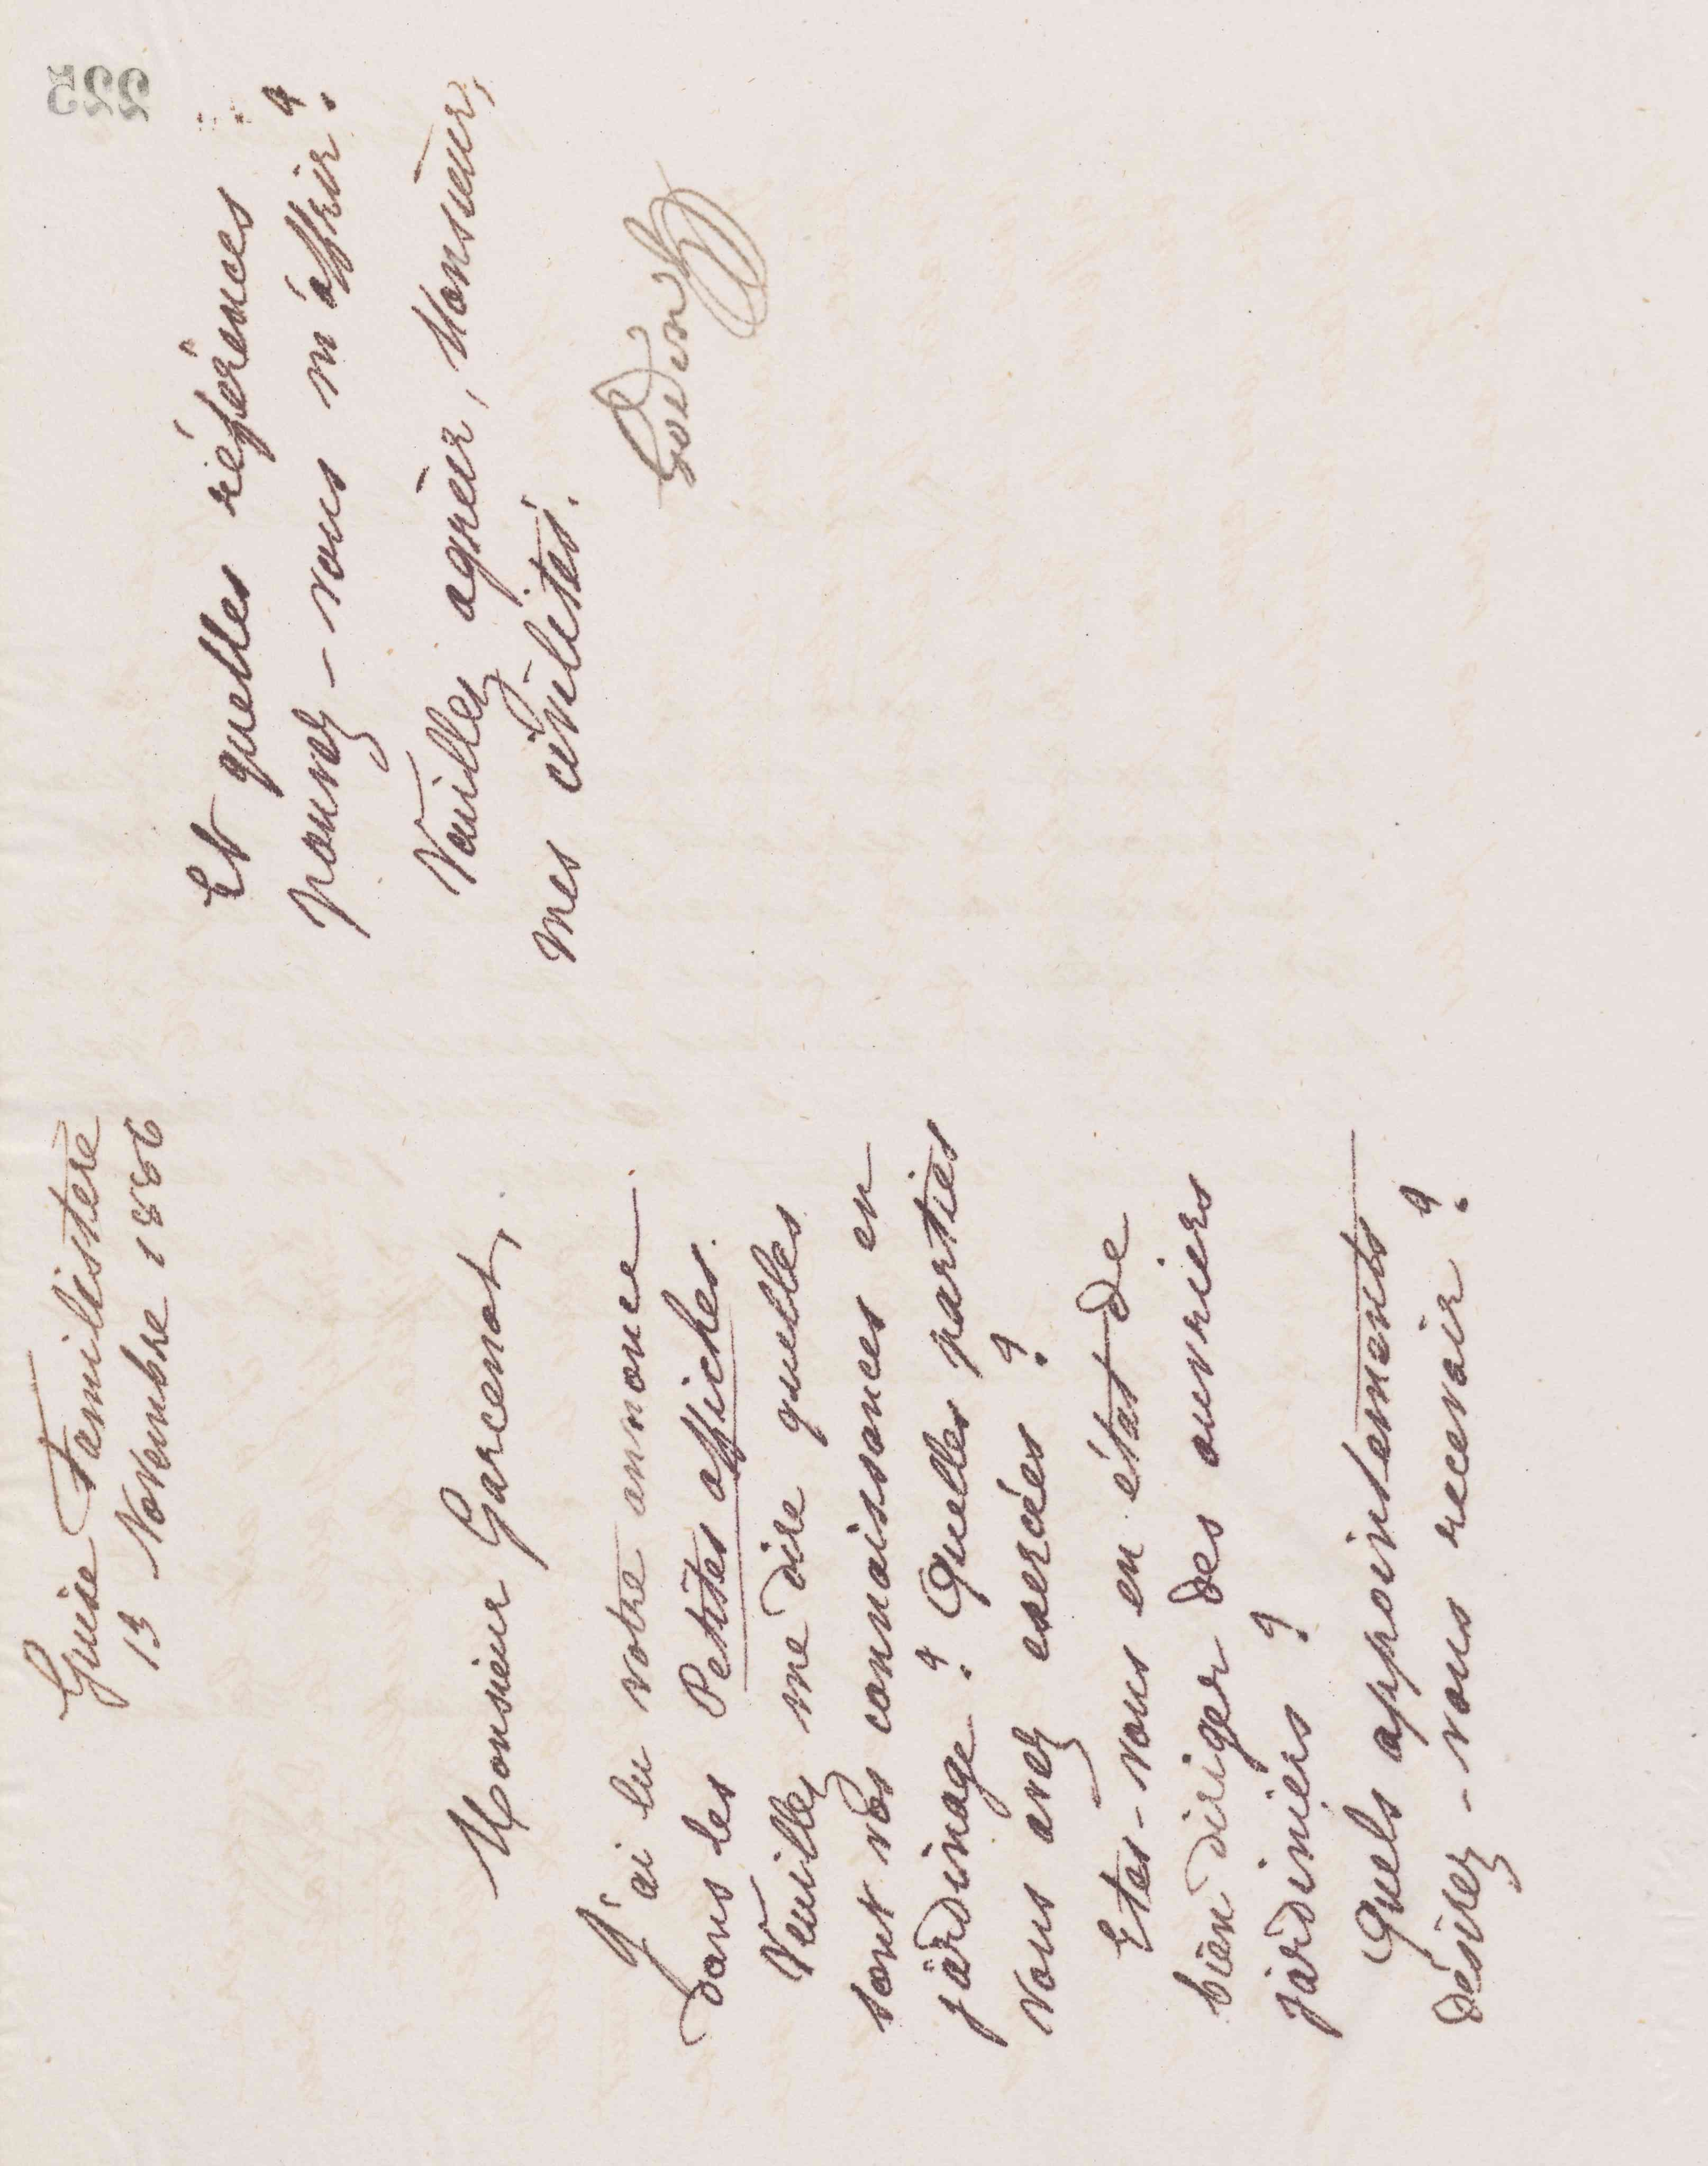 Guise Familistère
13 Novembre 1886
Monsieur Garcenot,
J'ai lu votre annonce
dans les Petites affiches.
Veuillez me dire quelles
sont vos connaissances en
jardinage ? Quelles parties
vous avez exercées ?
Etes-vous en état de
bien diriger des ouvriers
jardiniers ?
Quels appointements
désirez-vous recevoir ?
Et quelles références
pouvez-vous m'offrir ?
Veuillez agréer, Monsieur,
mes civilités.
Godin
552